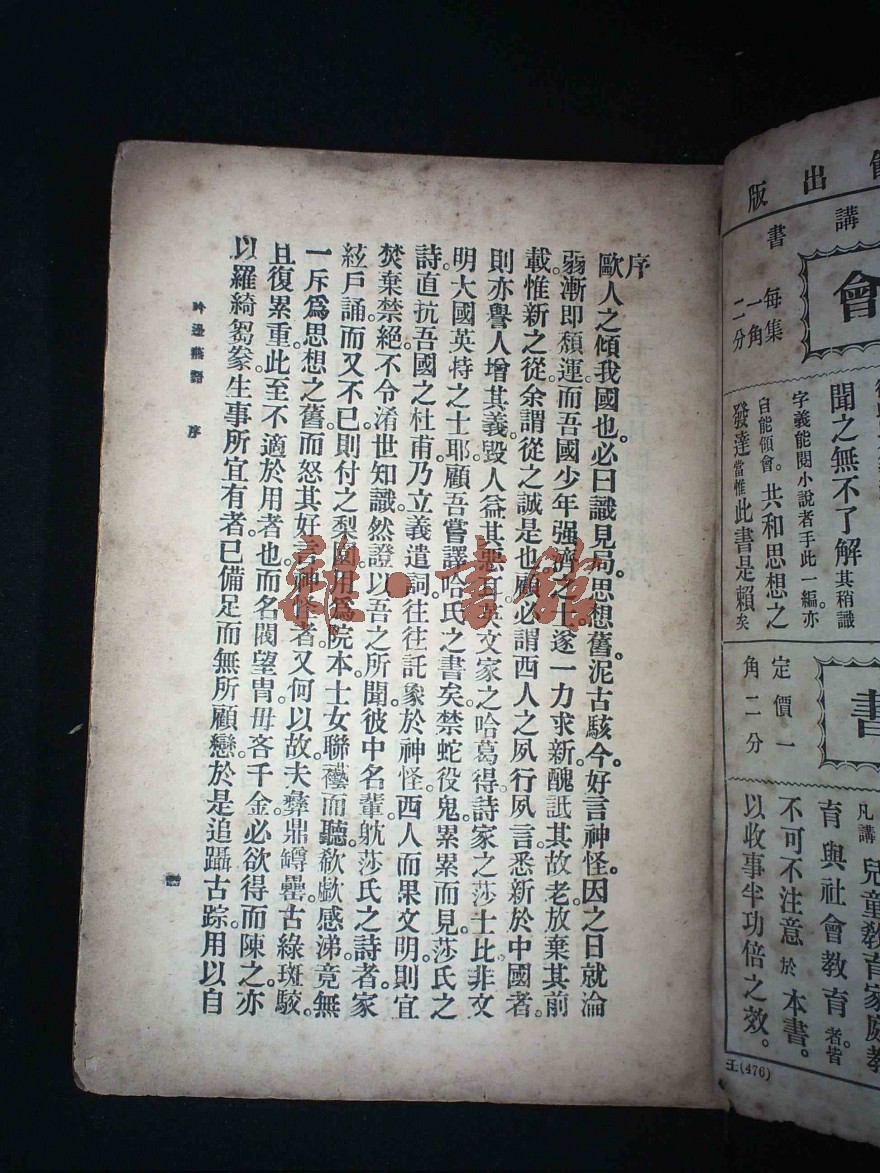 館出版
講書
每集
一角
二分
會
聞之無不了解其稍識
字義能閱小說者手此一編亦
自能領會。共和思想之
發達當惟此書是賴矣
定價一
角二分
書
凡講兒童敎育家庭敎
育與社會敎育者皆
不可不注意於本書。
以收事半功倍之效。
王(476)
序
歐人之傾我國也。必曰識見局。思想舊。泥古駭今。好言神怪。因之日就淪
弱。漸即頹運。而吾國少年强濟之士。遂一力求新。醜詆其故老。放棄其前
載。惟新之從。余謂從之誠是也。顧必謂西人之夙行夙言。悉新於中國者。
則亦譽人增其義。毀人益其惡耳。英文家之哈葛得。詩家之莎士比。非文
明大國英特之士耶。顧吾嘗譯哈氏之書矣。禁蛇役鬼。累累而見。莎氏之
詩。直抗吾國之杜甫。乃立義遣詞。往往託象於神怪。西人而果文明。則宜
焚棄禁絕。不令淆世知識。然證以吾之所聞。彼中名輩。躭莎氏之詩者。家
絃戶誦。而又不已。則付之梨園。用爲院本。士女聯襼而聽。欷歔感涕。竟無
一斥爲思想之舊。而怒其好言神怪者。又何以故。夫彝鼎罇罍。古綠斑駮。
且復累重。此至不適於用者也。而名閥望胄。毋吝千金。必欲得而陳之。亦
以羅綺芻豢。生事所宜有者。已備足而無所顧戀。於是追躡古踪。用以自
吟邊燕語　序
雜·書館